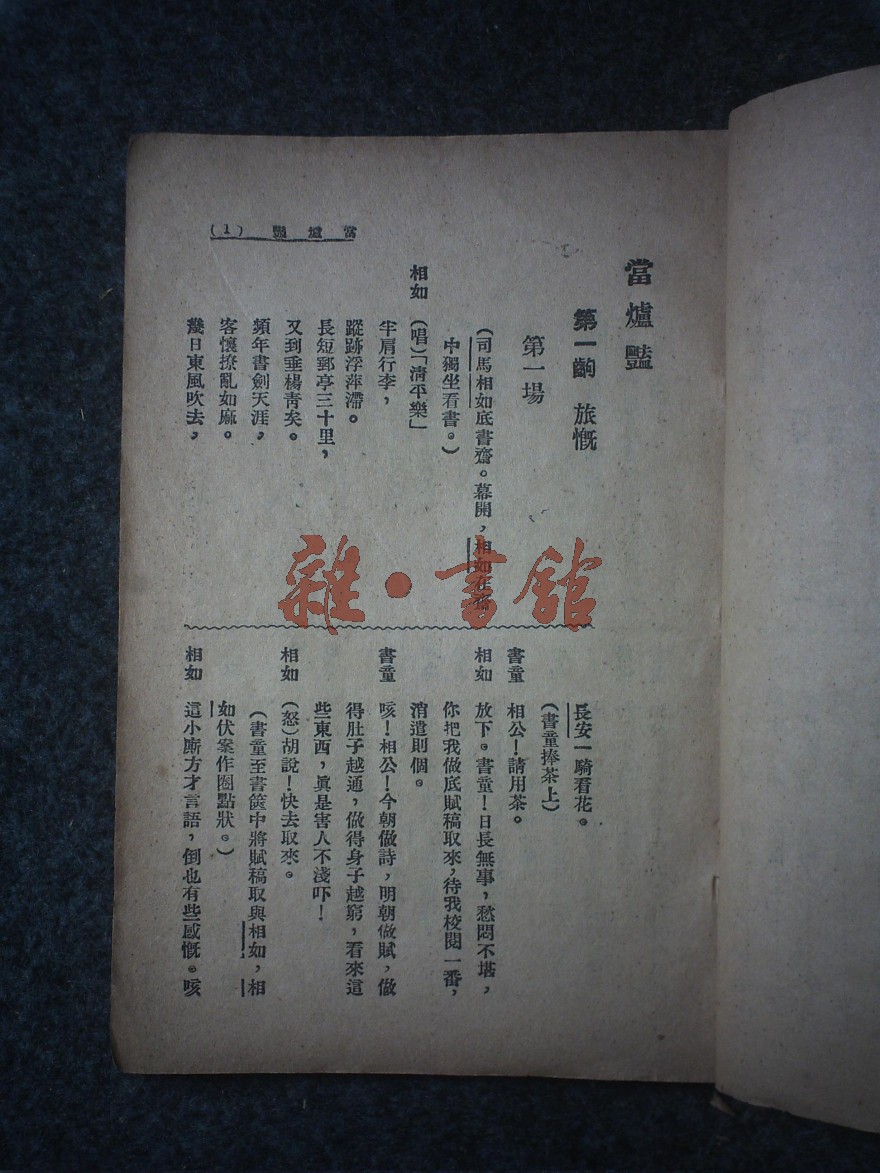 當爐豔
第一齣 旅慨
第一場
(司馬相如底書齋。幕開,相如在齋
中獨坐看書。)
相如 (唱)「淸平樂」
半肩行李,
蹤跡浮萍滯。
長短郵亭三十里,
又到垂楊靑矣。
頻年書劍天涯,
客懷撩亂如麻。
幾日東風吹去,
長安一騎看花。
(書童捧茶上)
書童 相公!請用茶。
相如 放下。書童!日長無事,愁悶不堪,
你把我做底賦稿取來,待我校閱一番,
消遣則個。
書童 咳!相公!今朝做詩,明朝做賦,做
得肚子越通,做得身子越窮,看來這
些東西,眞是害人不淺吓!
相如 (怒)胡說!快去取來。
(書童至書篋中將賦稿取與相如,相
如伏案作圈點狀。)
相如 這小廝方才言語,倒也有些感慨。咳
當爐豔 (1)
雜·書館